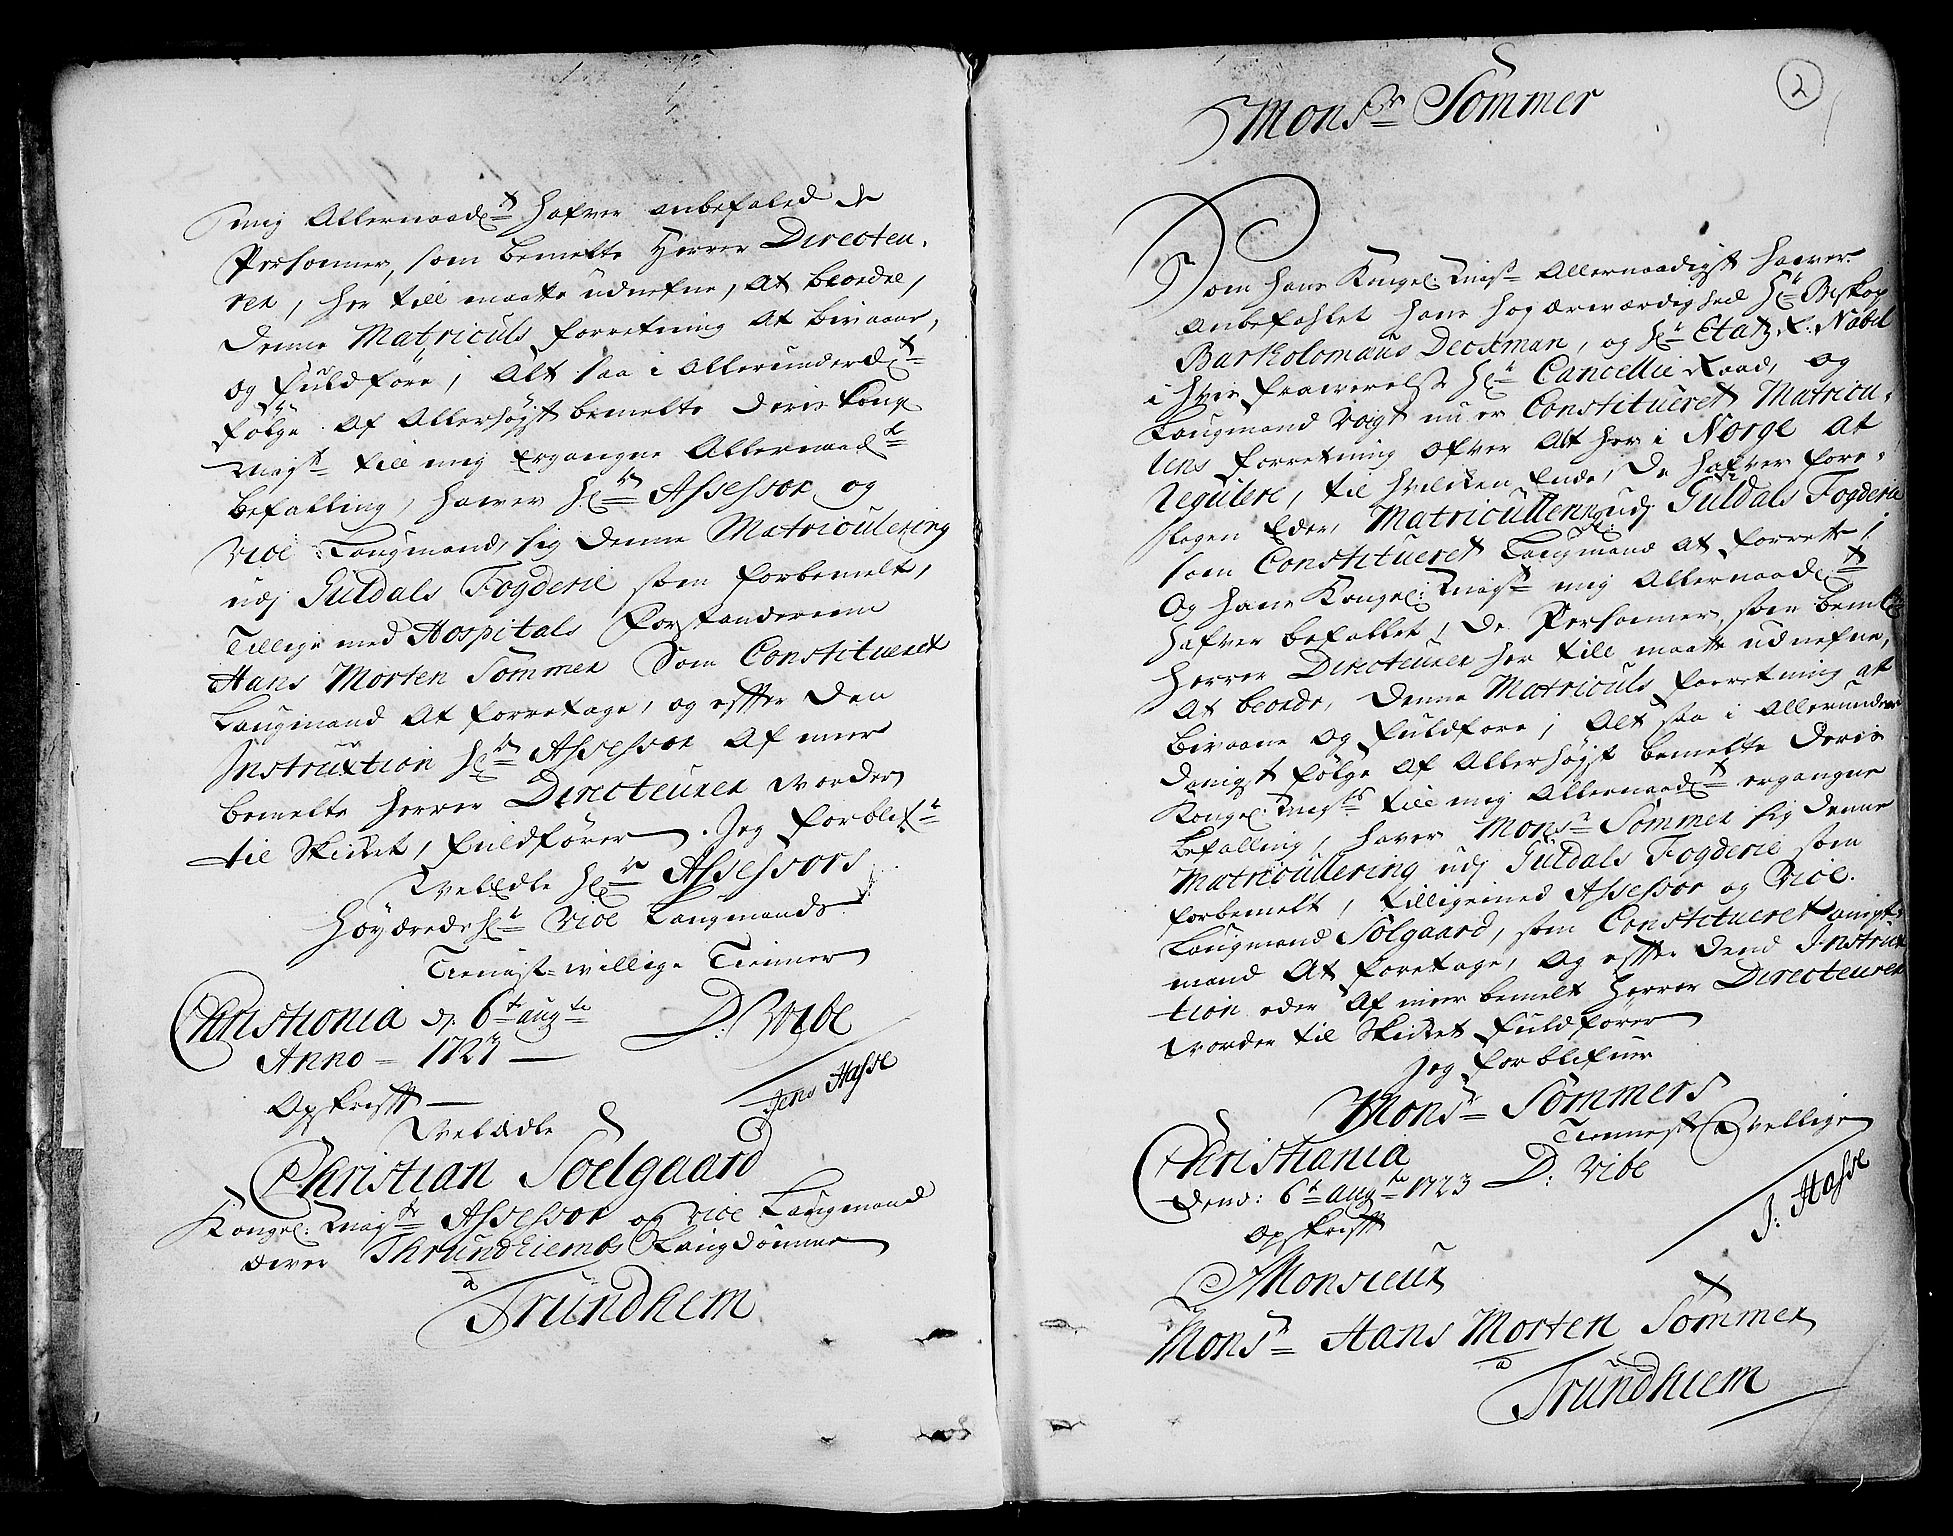 mig Allernaadgt hafver anbefaled de
Persohner, som bemelte Herrer Directeu-
rer, her till maatte udnefne, at beordre,
denne Matriculs forretning at bivaane,
og fuldføre, Alt saa i Allerunderdgt
følge af Allerhøyst bemelte Deris Kong
Mayts till mig ergangne Allernaadgt
befalling, haver Hr Assessor og
Vice Laugmand, sig denne Matriculering
udj Guldals Fogderie som forbemelt,
Tillige med Hospitals Forstanderen
Hans Morten Sommer Som Constitueret
Laugmand at foretage, og effter den
Instruxtion Hr Assessor af meer
bemelte Herrer Directeurer vorder
til Skicket, fuldfører. Jeg forblifr
Velædle Hr Assessors
Høyædle Hr Vice Laugmands
Tienist-willige Tienner
Christiania d. 6te augte D: Vibe
Anno 1723
Jens Hasse
Opskrifft
Velædle
Christian Soelgaard
Kongel: Mayts Assessor og Vice Laugmand
over Thrundhiembs Laugdømme
a
Trundhem
2
Monsr Sommer
Som Hans Kongel. Mayt Allernaadigst haver
anbefahlet hans Højærværdighed Hr Biskop
Bartholomæus Deickman, og Hr Etatz R: Nobel
i hvis fraværelse Hr Cancellie Raad, og
Laugmand Vogt nu er Constitueret Matricu-
lens forretning ofver alt her i Norge at
Regulere, til hvilken Ende, de hafver fore-
slagen Eder, Matriculleringen udj Guldals Fogderie
som Constitueret Laugmand at forrette,
Og hans Kongel: Mayt mig Allernaadgt
hafver befallet, de Persohner, som bemelte
Herrer Directeurer her till maatte udnefne,
at beordre, denne Matriculs forretning at
bivaane og fuldføre, Alt saa i Allerunder-
danigst følge af Allerhøyst bemelte Deris
Kongel: Mayts till mig Allernaadgt ergangne
befalling, haver Monsr Sommer sig denne
Matricullering udj Guldals Fogderie som
forbemelt, tilligemed Assessor og Vice-
Laugmand Solgaard, som Constitueret Laug-
mand at foretage, og effter dend Instrux-
tion eder af meer bemelt Herrer Directeurer
vorder til Skicket fuldfører
Jeg forblifuer
Monsr Sommers
Tiennest Villige
Christiania D: Vibe
dend: 6te augte 1723
J: Hasse
Opskrifft
A Monsieur
Monsr Hans Morten Sommer
a
Trundhiem